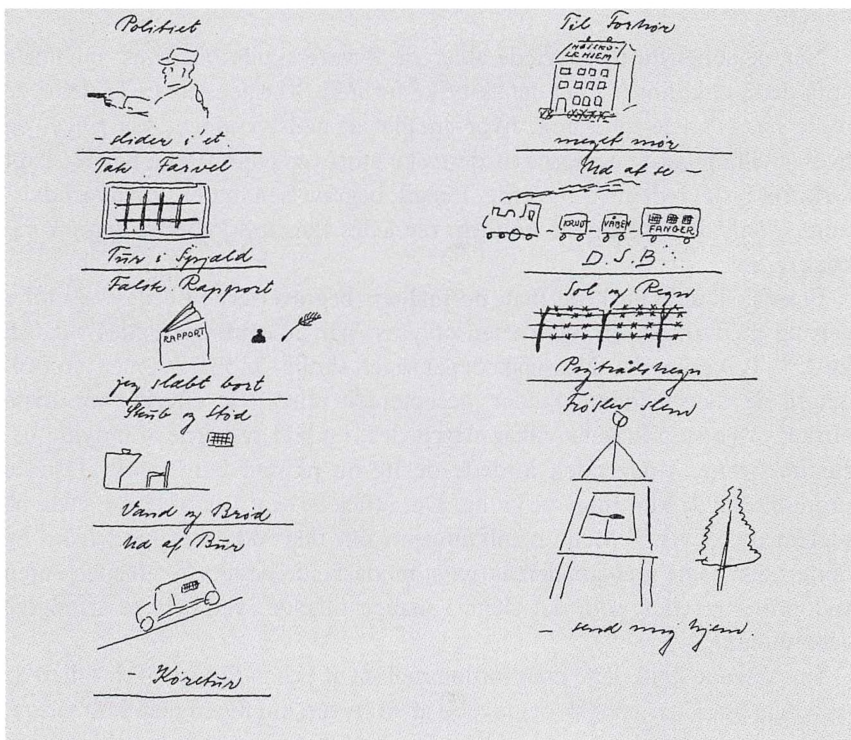 Politiet
- slider i et.
Tak Farvel
Tūr i Spjæld
Falsk Rapport
RAPPORT
jeg slæbt bort
Skub og Stöd
Vand og Bröd
Ud af Būr
- Köretūr
Til Forhör
HØJSKO-
LEHJEM
meget mör
Ud at se -
KRUDT VÅBEN FANGER
D.S.B.
Sol og Regn
Pigtrådshegn
Fröslev slem
- send mig hjem.